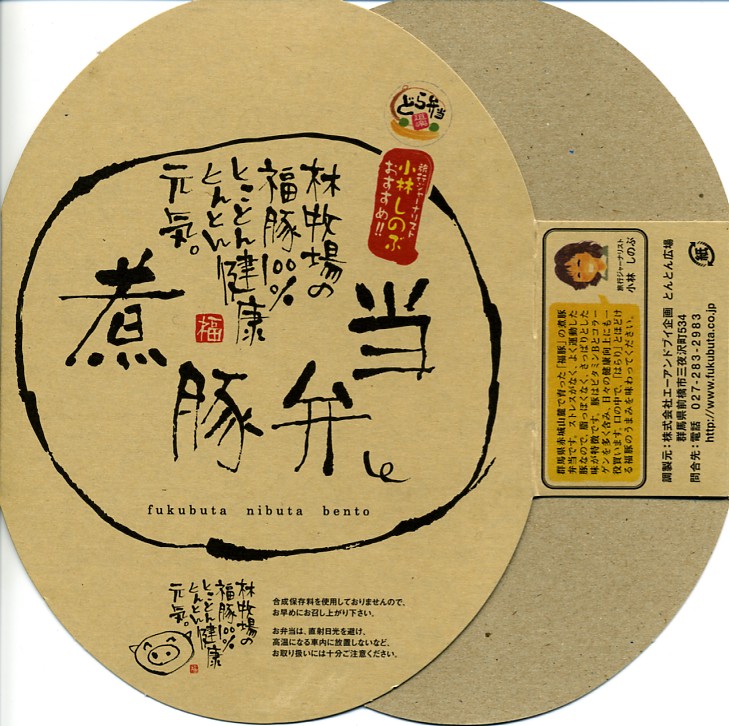 どら弁当
旅行ジャーナリスト
小林しのぶ
おすすめ!!
林牧場の
福豚100%
とことん健康
とんとん
元気。
福
煮豚弁当
fukubuta nibuta bento
林牧場の
福豚100%
とことん健康
とんとん
元気。
福
合成保存料を使用しておりませんので、
お早めにお召し上がり下さい。
お弁当は、直射日光を避け、
高温になる車内に放置しないなど、
お取り扱いには十分ご注意ください。
旅行ジャーナリスト
小林 しのぶ
群馬県赤城山麓で育った「福豚」の煮豚
弁当です。ストレスがなく、よく運動した
豚なので、脂っぽくなく、さっぱりとした
味が特徴です。豚はビタミンBとコラー
ゲンを多く含み、日々の健康向上にも一
役買います。口の中で、「はらり」とほどけ
る福豚のうまみを味わってください。
紙
調製元：株式会社エーアンドブイ企画 とんとん広場
群馬県前橋市三夜沢町534
問合先：電話 027-283-2983
http://www.fukubuta.co.jp